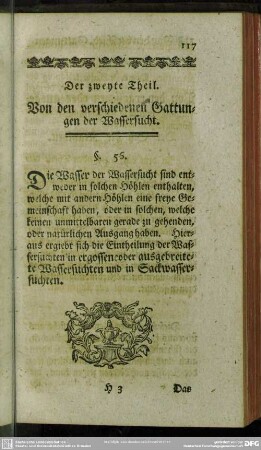 117
Der zweyte Theil.
Von den verschiedenen Gattun-
gen der Wassersucht.
§. 56.
Die Wasser der Wassersucht sind ent-
weder in solchen Höhlen enthalten,
welche mit andern Höhlen eine freye Ge-
meinschaft haben, oder in solchen, welche
keinen unmittelbaren gerade zu gehenden,
oder natürlichen Ausgang haben. Hier-
aus ergiebt sich die Eintheilung der Was-
sersuchten in ergossen-oder ausgebreite-
te Wassersuchten und in Sackwasser-
suchten.
H 3
Das
DFG